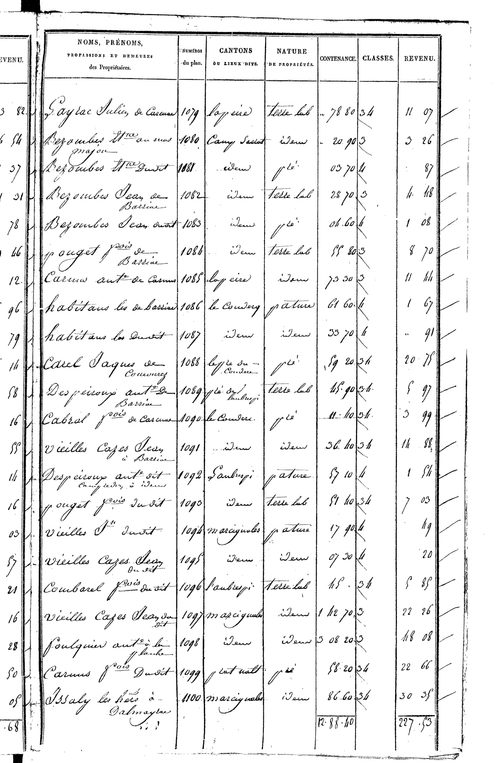 NOMS, PRÉNOMS, PROFESSIONS ET DEMEURES des Propriétaires. NUMÉROS du plan. CANTONS OU LIEUX DITS. NATURE DE PROPRIÉTÉS. CONTENANCE. CLASSES. REVENU.
EVENU.
82 Gayrac Julien de Carmus 1079 lapeire terre lab „ 78 80 34 11 07
54 Bezombes Etne au mas major 1080 Camp 20 90 3 3 26
37 Bezombes Etne Dudit 1081 idem pré 03 70 4 87
31 Bezombes Jean de Barrine 1082 idem terre lab 28 70 3 4 48
78 Bezombes Jean dudit 1083 idem pré 04 60 4 1 08
46 pouget fçois de Barrine 1084 idem terre lab 55 80 3 8 70
12 Carmus ant. de Carmus 1085 lapeire idem 73 30 3 11 44
96 habitans les de barrine 1086 le Couderq pature 61 60 4 1 67
79 habitans les Dudit 1087 idem idem 33 70 4 „ 91
14 Carel Jaques de 1088 le pré du pré 59 20 34 20 75
58 Despeiroux ant. De Barrine 1089 pré de laubrespi terre lab 45 90 34 5 97
16 Cabrol fçois de Carmus 1090 le Couderc pré 11 40 34 3 99
55 Vieilles Cazes Jean à Barrine 1091 idem idem 36 40 34 14 88
14 Despeiroux ant. dit à idem 1092 Laubrespi pature 57 10 4 1 54
16 pouget fçois Dudit 1093 idem terre lab 51 40 34 7 03
03 Vieilles Jn Dudit 1094 marcignoles pature 17 90 4 49
57 Vieilles Cazes Jean dudit 1095 idem idem 07 30 4 20
21 Combarel fçois dudit 1096 l'aubrespi terre lab 45 - 34 5 85
16 Vieilles Cazes Jean du dit 1097 marcignoles idem 1 42 70 3 22 26
28 foulquier ant. à la 1098 idem idem 3 08 20 3 48 08
50 Carmus fçois Dudit 1099 prat pré 58 20 34 22 66
05 Issaly les hers à Dalmayrac 1100 marcignoles idem 86 60 34 30 35
68 12 88 40 227 53